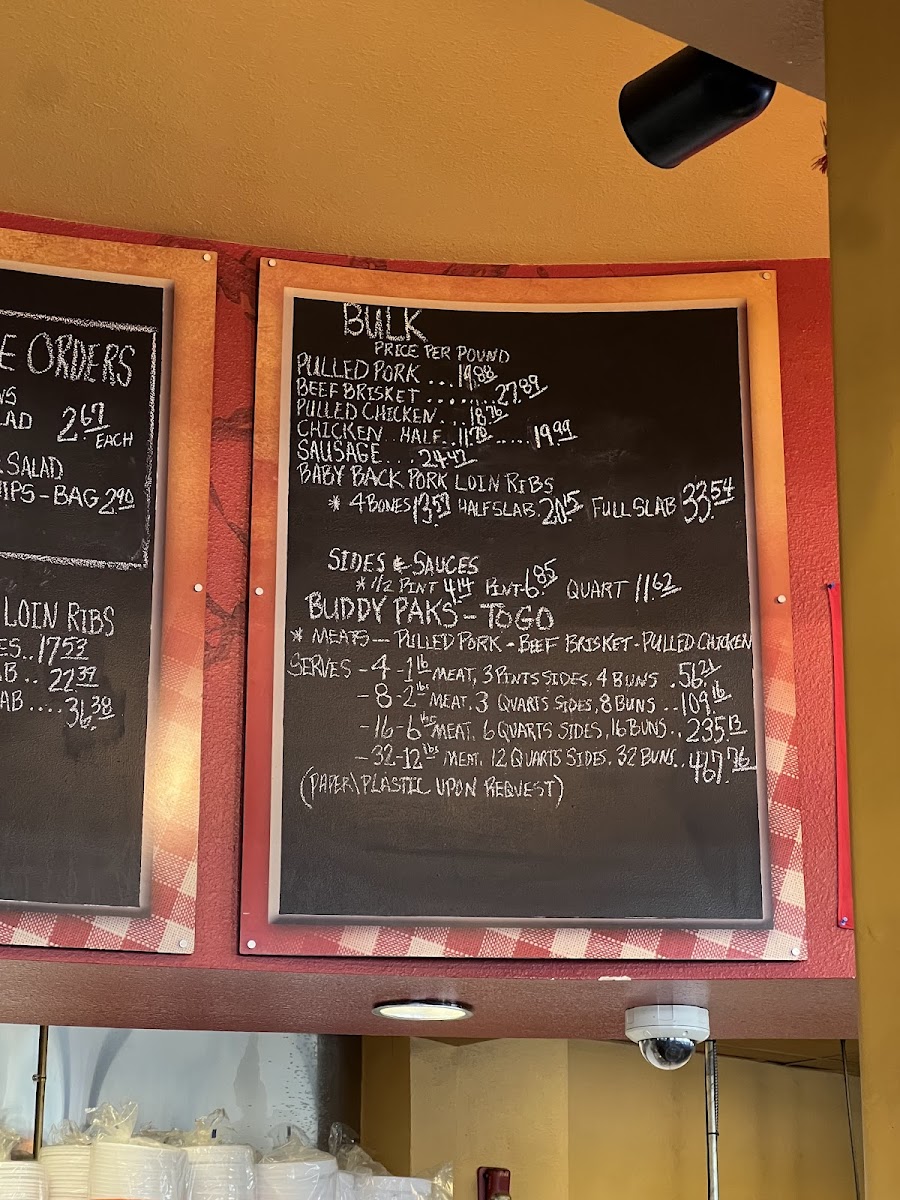 E ORDERS
NS
LAD 2.67
EACH
& SALAD
HIPS - BAG 2.90
LOIN RIBS
ES.. 17.53
AB.. 22.39
LAB.... 36.38
BULK
PRICE PER POUND
PULLED PORK ... 19.88
BEEF BRISKET ........ 27.89
PULLED CHICKEN ... 18.76
CHICKEN.. HALF.. 11.70 ..... 19.99
SAUSAGE.... 24.47
BABY BACK PORK LOIN RIBS
* 4 BONES 13.59 HALF SLAB. 20.15 FULL SLAB 33.54
SIDES & SAUCES
* 1/2 PINT 4.14 PINT 6.85 QUART 11.62
BUDDY PAKS - TO GO
* MEATS — PULLED PORK - BEEF BRISKET - PULLED CHICKEN
SERVES - 4 - 1 lb MEAT, 3 PINTS SIDES, 4 BUNS .. 56.21
- 8 - 2 lbs MEAT. 3 QUARTS SIDES, 8 BUNS .. 109.16
- 16 - 6 lbs MEAT, 6 QUARTS SIDES, 16 BUNS.. 235.13
- 32 - 12 lbs MEAT. 12 QUARTS SIDES. 32 BUNS.. 467.76
(PAPER\PLASTIC UPON REQUEST)